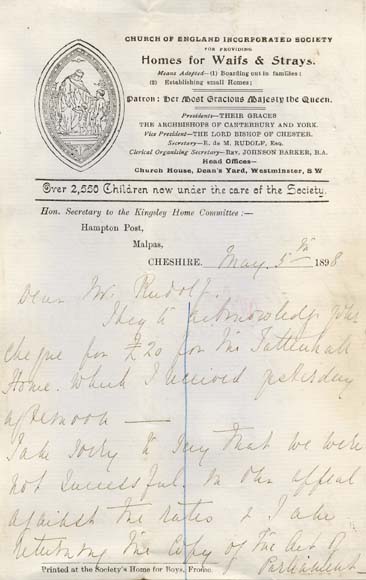 CHURCH OF ENGLAND INCORPORATED SOCIETY
FOR PROVIDING
Homes for Waifs & Strays.
Means Adopted—(1) Boarding out in families;
(2) Establishing small Homes;
Patron: Her Most Gracious Majesty the Queen.
Presidents—THEIR GRACES
THE ARCHBISHOPS OF CANTERBURY AND YORK.
Vice President—THE LORD BISHOP OF CHESTER.
Secretary—E. de M. RUDOLF, Esq.
Clerical Organising Secretary—Rev. JOHNSON BARKER, B.A.
Head Offices—
Church House, Dean's Yard, Westminster, S W
Over 2,550 Children now under the care of the Society.
Hon. Secretary to the Kingsley Home Committee:—
Hampton Post,
Malpas,
CHESHIRE. May 5th 1898
Dear Mr Rudolf.
I beg to acknowledge your
cheque for £20 for the Tattenhall
Home. which I received yesterday
afternoon —
I am sorry to say that we were
not successful. in our appeal
against the rates & I am
returning the Copy of the Act of
Parliament—
Printed at the Society's Home for Boys, Frome.